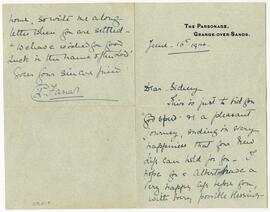 home, so write me along
letter when you are settled -
Good
luck in the name of the Lord
Ever your sincere friend
THE PARSONAGE,
GRANGE-OVER-SANDS.
June - 15th
Dear Sidney
This is just to bid you
God speed as a pleasant
journey, ending in every
happiness that your New
life can hold for you - I
hope for
very happy life before you,
with every possible blessing -